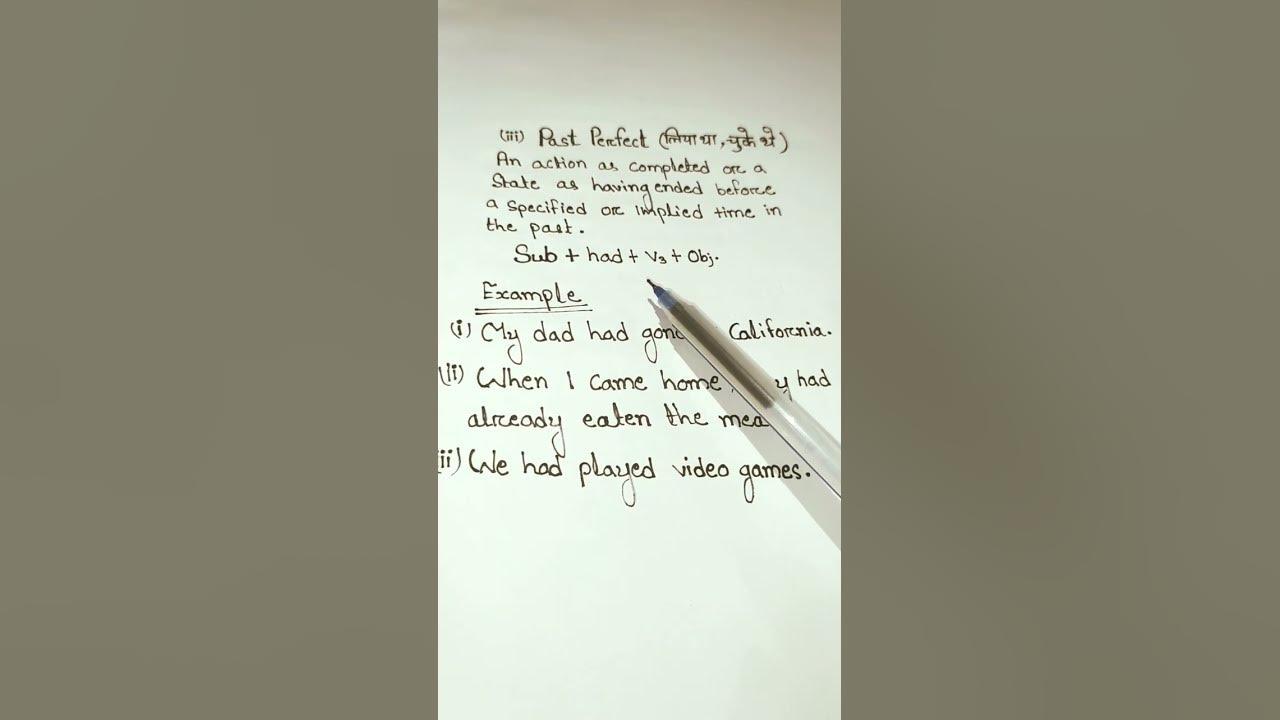 (iii) Past Perfect (लिया था, चुके थे)
An action as completed or a
State as having ended before
a specified or implied time in
the past.
Sub + had + V₃ + Obj.
Example
(i) My dad had California.
(ii) When I came home, had
already eaten the
ii) We had played video games.